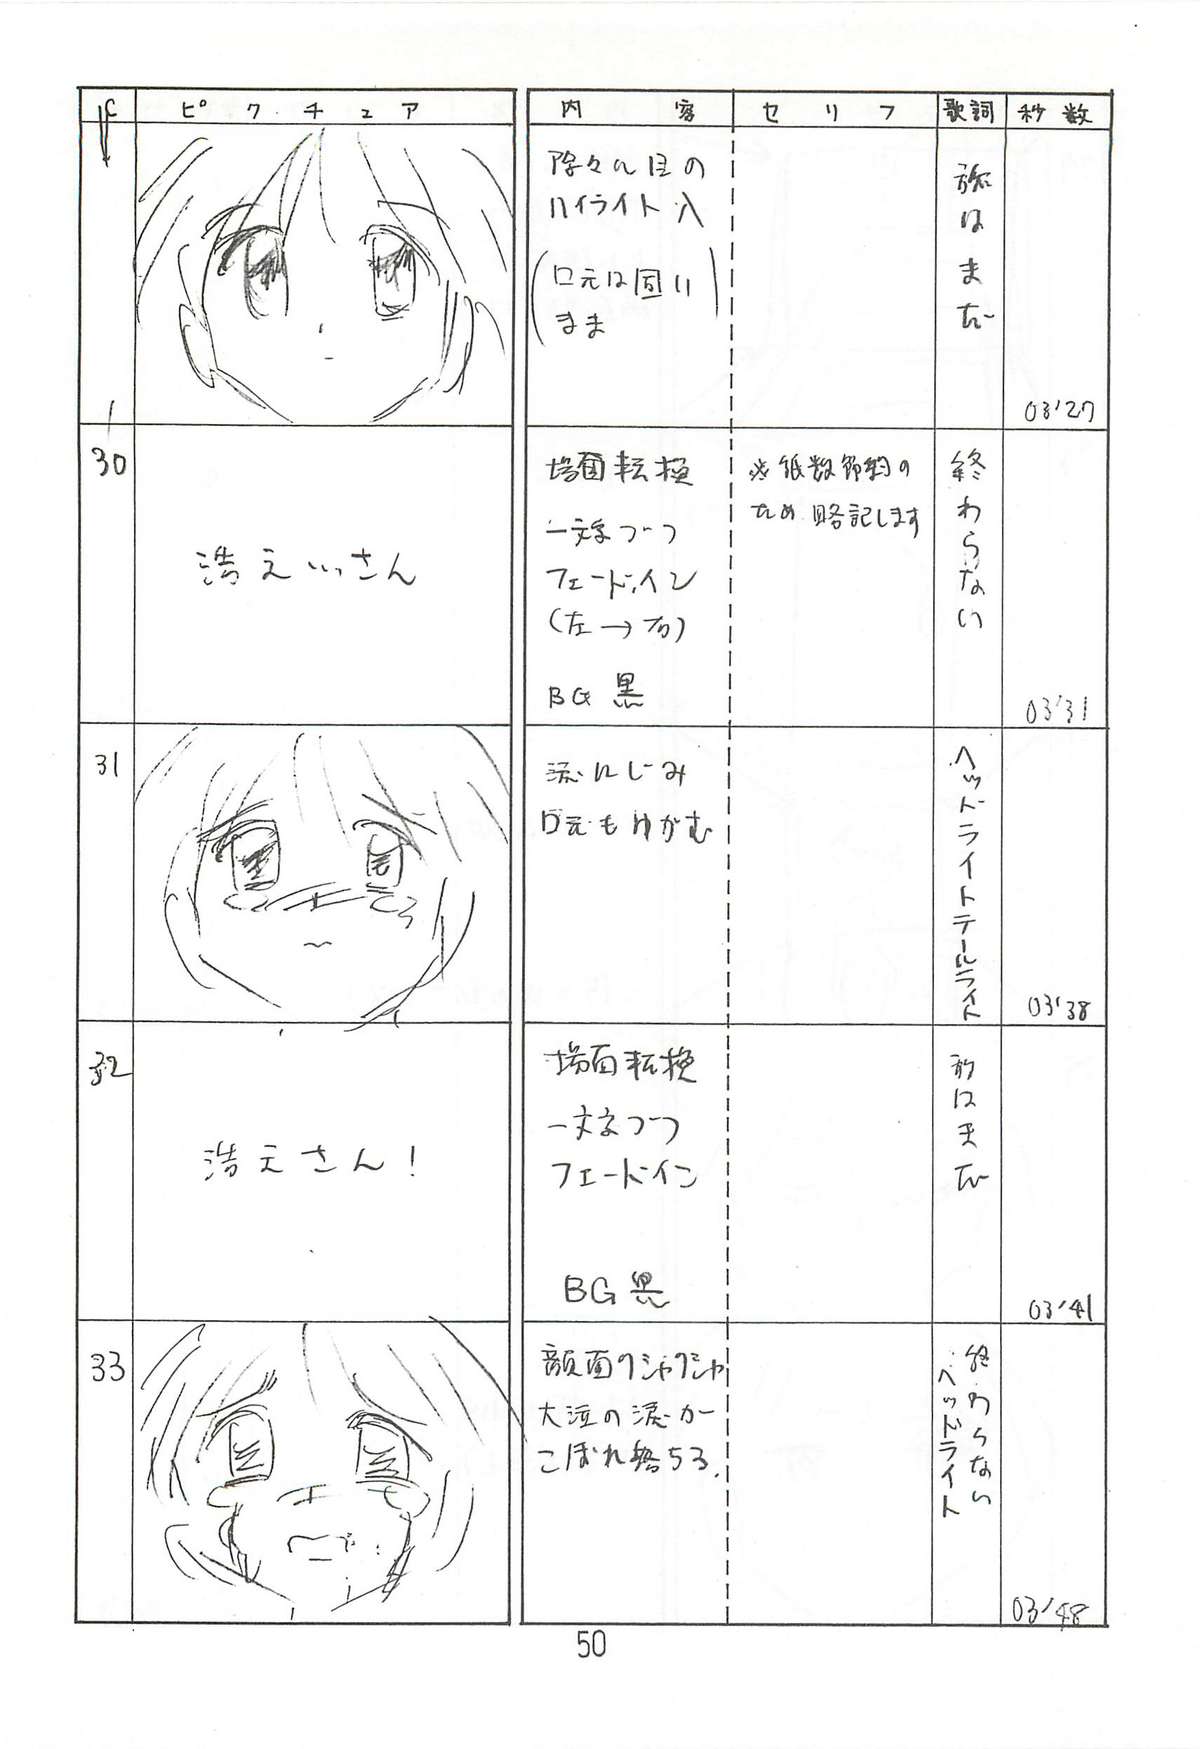 c ピクチュア 内容 セリフ 歌詞 秒数
徐々に目の
ハイライト入
(口元は固い
まま)
旅はまだ
03'27
30
浩えぃっさん
場面転換
一文字づつ
フェードイン
(左→右)
BG 黒
※紙数節約の
ため略記します
終わらない
03'31
31
涙にじみ
口元もゆがむ
ヘッドライトテールライト
03'38
32
浩えさん!
場面転換
一文字づつ
フェードイン
BG 黒
旅はまだ
03'41
33
顔面クシャクシャ
大泣の涙が
こぼれ落ちる.
終わらない
ヘッドライト
03'48
50